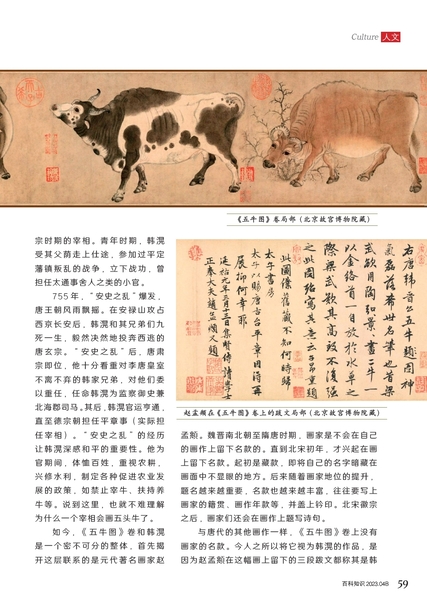 Culture 人文
《五牛图》卷局部（北京故宫博物院藏）
宗时期的宰相。青年时期，韩滉
受其父荫走上仕途，参加过平定
藩镇叛乱的战争，立下战功，曾
担任太通事舍人之类的小官。
755年，“安史之乱”爆发，
唐王朝风雨飘摇。在安禄山攻占
西京长安后，韩滉和其兄弟们九
死一生，毅然决然地投奔西逃的
唐玄宗。“安史之乱”后，唐肃
宗即位，他十分看重对李唐皇室
不离不弃的韩家兄弟，对他们委
以重任，任命韩滉为监察御史兼
北海郡司马。其后，韩滉官运亨通，
直至德宗朝担任平章事（实际担
任宰相）。“安史之乱”的经历
让韩滉深感和平的重要性。他为
官期间，体恤百姓，重视农耕，
兴修水利，制定各种促进农业发
展的政策，如禁止宰牛、扶持养
牛等。说到这里，也就不难理解
为什么一个宰相会画五头牛了。
如今，《五牛图》卷和韩滉
是一个密不可分的整体，首先揭
开这层联系的是元代著名画家赵
右唐韩晋公五牛图神
气磊落希世名笔也昔梁
武欲用陶弘景画二牛一
以金络首一自放于水草之
际梁武叹其高致不复强
之此图绘写其意云子昂重题
此图仆旧藏不知何时归
太子书房
太子以赐唐古台平章因得再
展抑何幸耶
延祐元年三月十三日集贤侍讲学士
正奉大夫赵孟頫又题
赵孟頫在《五牛图》卷上的跋文局部（北京故宫博物院藏）
孟頫。魏晋南北朝至隋唐时期，画家是不会在自己
的画作上留下名款的。直到北宋初年，才兴起在画
上留下名款。起初是藏款，即将自己的名字暗藏在
画面中不显眼的地方。后来随着画家地位的提升，
题名越来越重要，名款也越来越丰富，往往要写上
画家的籍贯、画作年款等，并盖上钤印。北宋徽宗
之后，画家们还会在画作上题写诗句。
与唐代的其他画作一样，《五牛图》卷上没有
画家的名款。今人之所以将它视为韩滉的作品，是
因为赵孟頫在这幅画上留下的三段跋文都称其是韩
百科知识 2023.04B 59